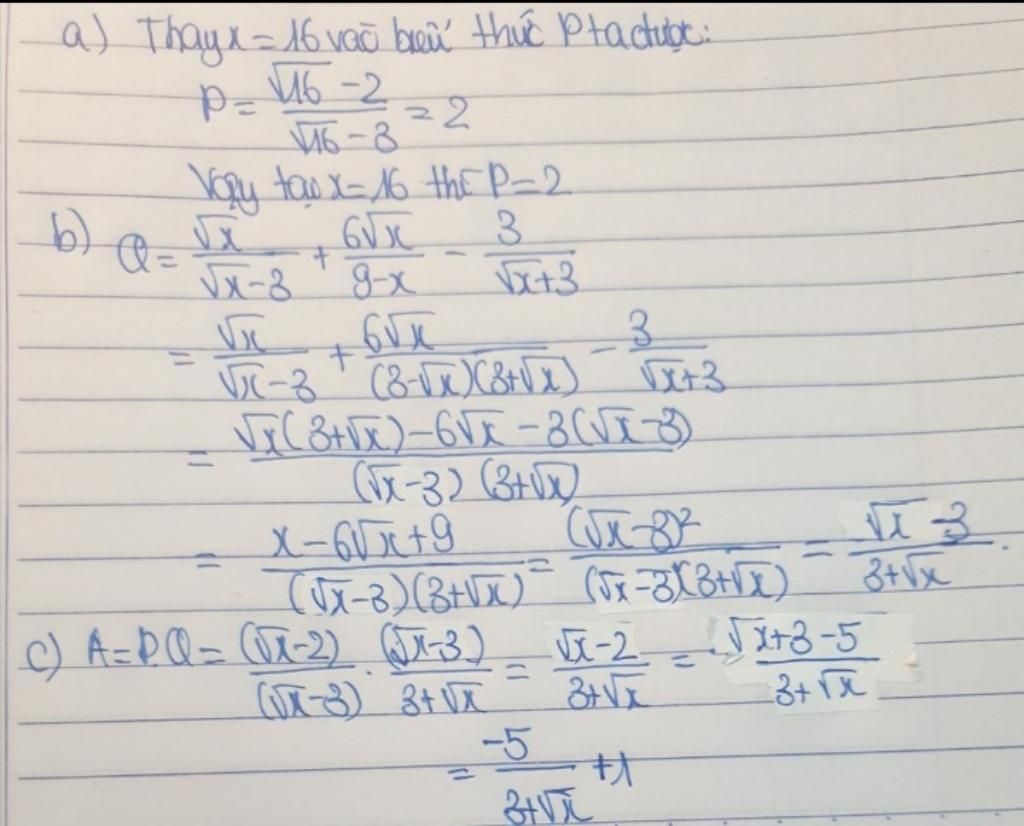 a) Thay x = 16 vào biểu thức P ta được:
P = (√16 - 2)/(√16 - 3) = 2
Vậy tại x = 16 thì P = 2
b) Q = √x/(√x - 3) + 6√x/(9 - x) - 3/(√x + 3)
= √x/(√x - 3) + 6√x/((3 - √x)(3 + √x)) - 3/(√x + 3)
= (√x(3 + √x) - 6√x - 3(√x - 3))/((√x - 3)(3 + √x))
= (x - 6√x + 9)/((√x - 3)(3 + √x)) = (√x - 3)²/((√x - 3)(3 + √x)) = (√x - 3)/(3 + √x).
c) A = P.Q = (√x - 2)/(√x - 3) . (√x - 3)/(3 + √x) = (√x - 2)/(3 + √x) = (√x + 3 - 5)/(3 + √x)
= -5/(3 + √x) + 1